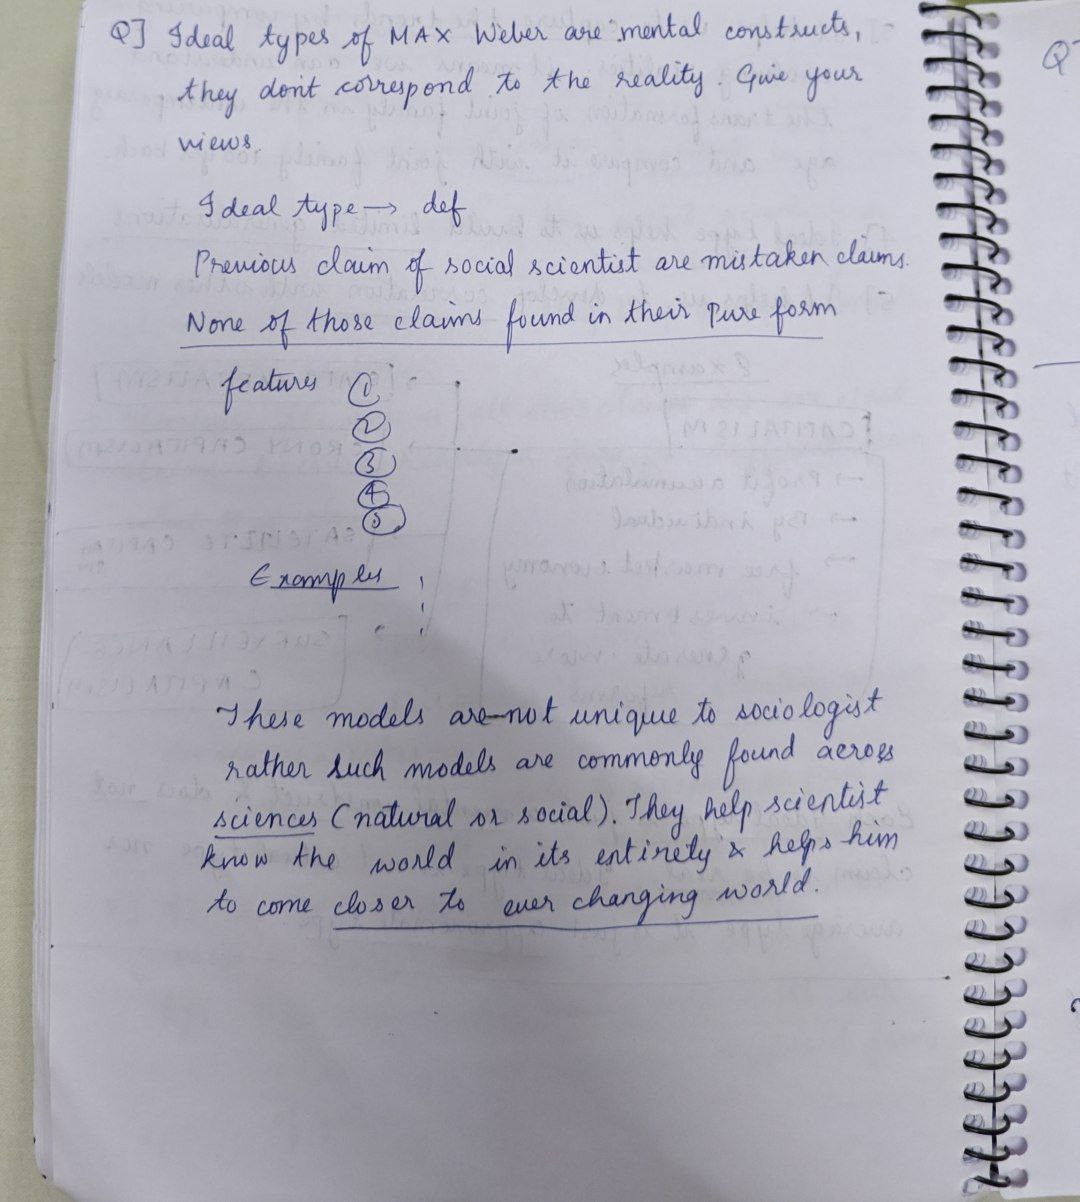 Q] Ideal types of MAX Weber are mental constructs,
they don't correspond to the reality. Give your
views.
Ideal type → def
Previous claim of social scientist are mistaken claims.
None of those claims found in their Pure form
features ①
②
③
④
⑤
Examples
These models are not unique to sociologist
rather such models are commonly found across
sciences (natural or social). They help scientist
know the world in its entirety & helps him
to come closer to ever changing world.
Q